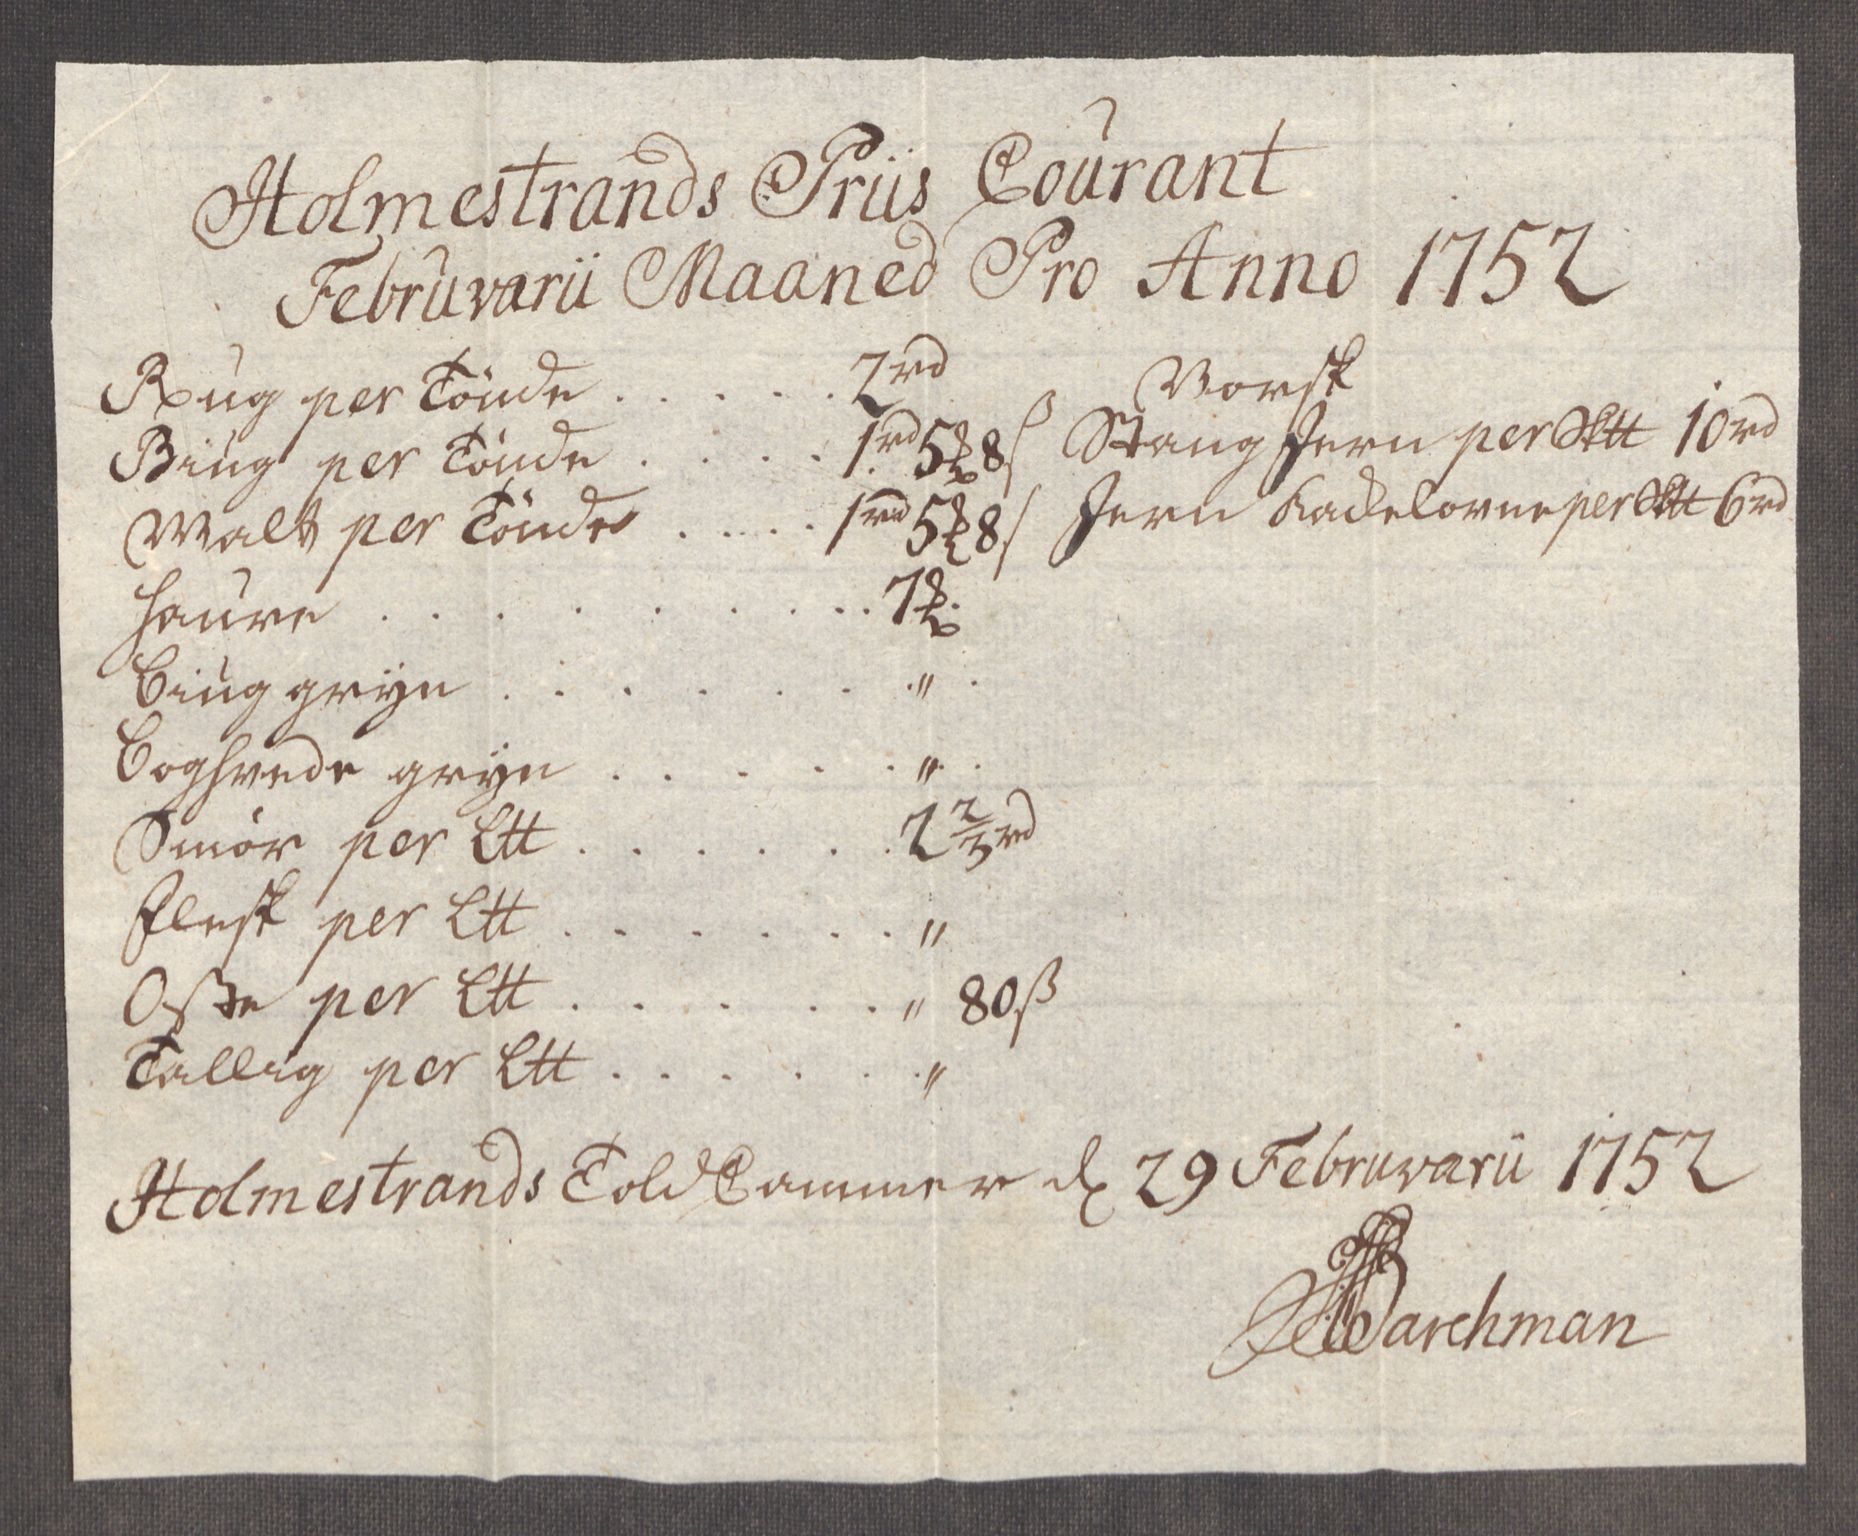 Holmestrands Priis Courant
Februvarii Maaned Pro Anno 1752
Rug per Tönde . . . . . . 2 rd
Biug per Tönde . . . . 1 rd 5 8 ß
Malt per Tönde . . . . . 1 rd 5 8 ß
Haure . . . . . . . . . 7
Biug gryn . . . . . . . "
Boghvede gryn . . . . . . "
Smör per Ltt . . . . . . 2 2/3 rd
Flesk per Ltt . . . . . . . "
Oste per Ltt . . . . . . " 80 ß
Tallig per Ltt . . . . . . "
Norsk
Stang Jern per Sktt 10 rd
Jern Kackelovne per Sktt 6 rd
Holmestrands Told Cammer d 29 Februvarii 1752
Barchman